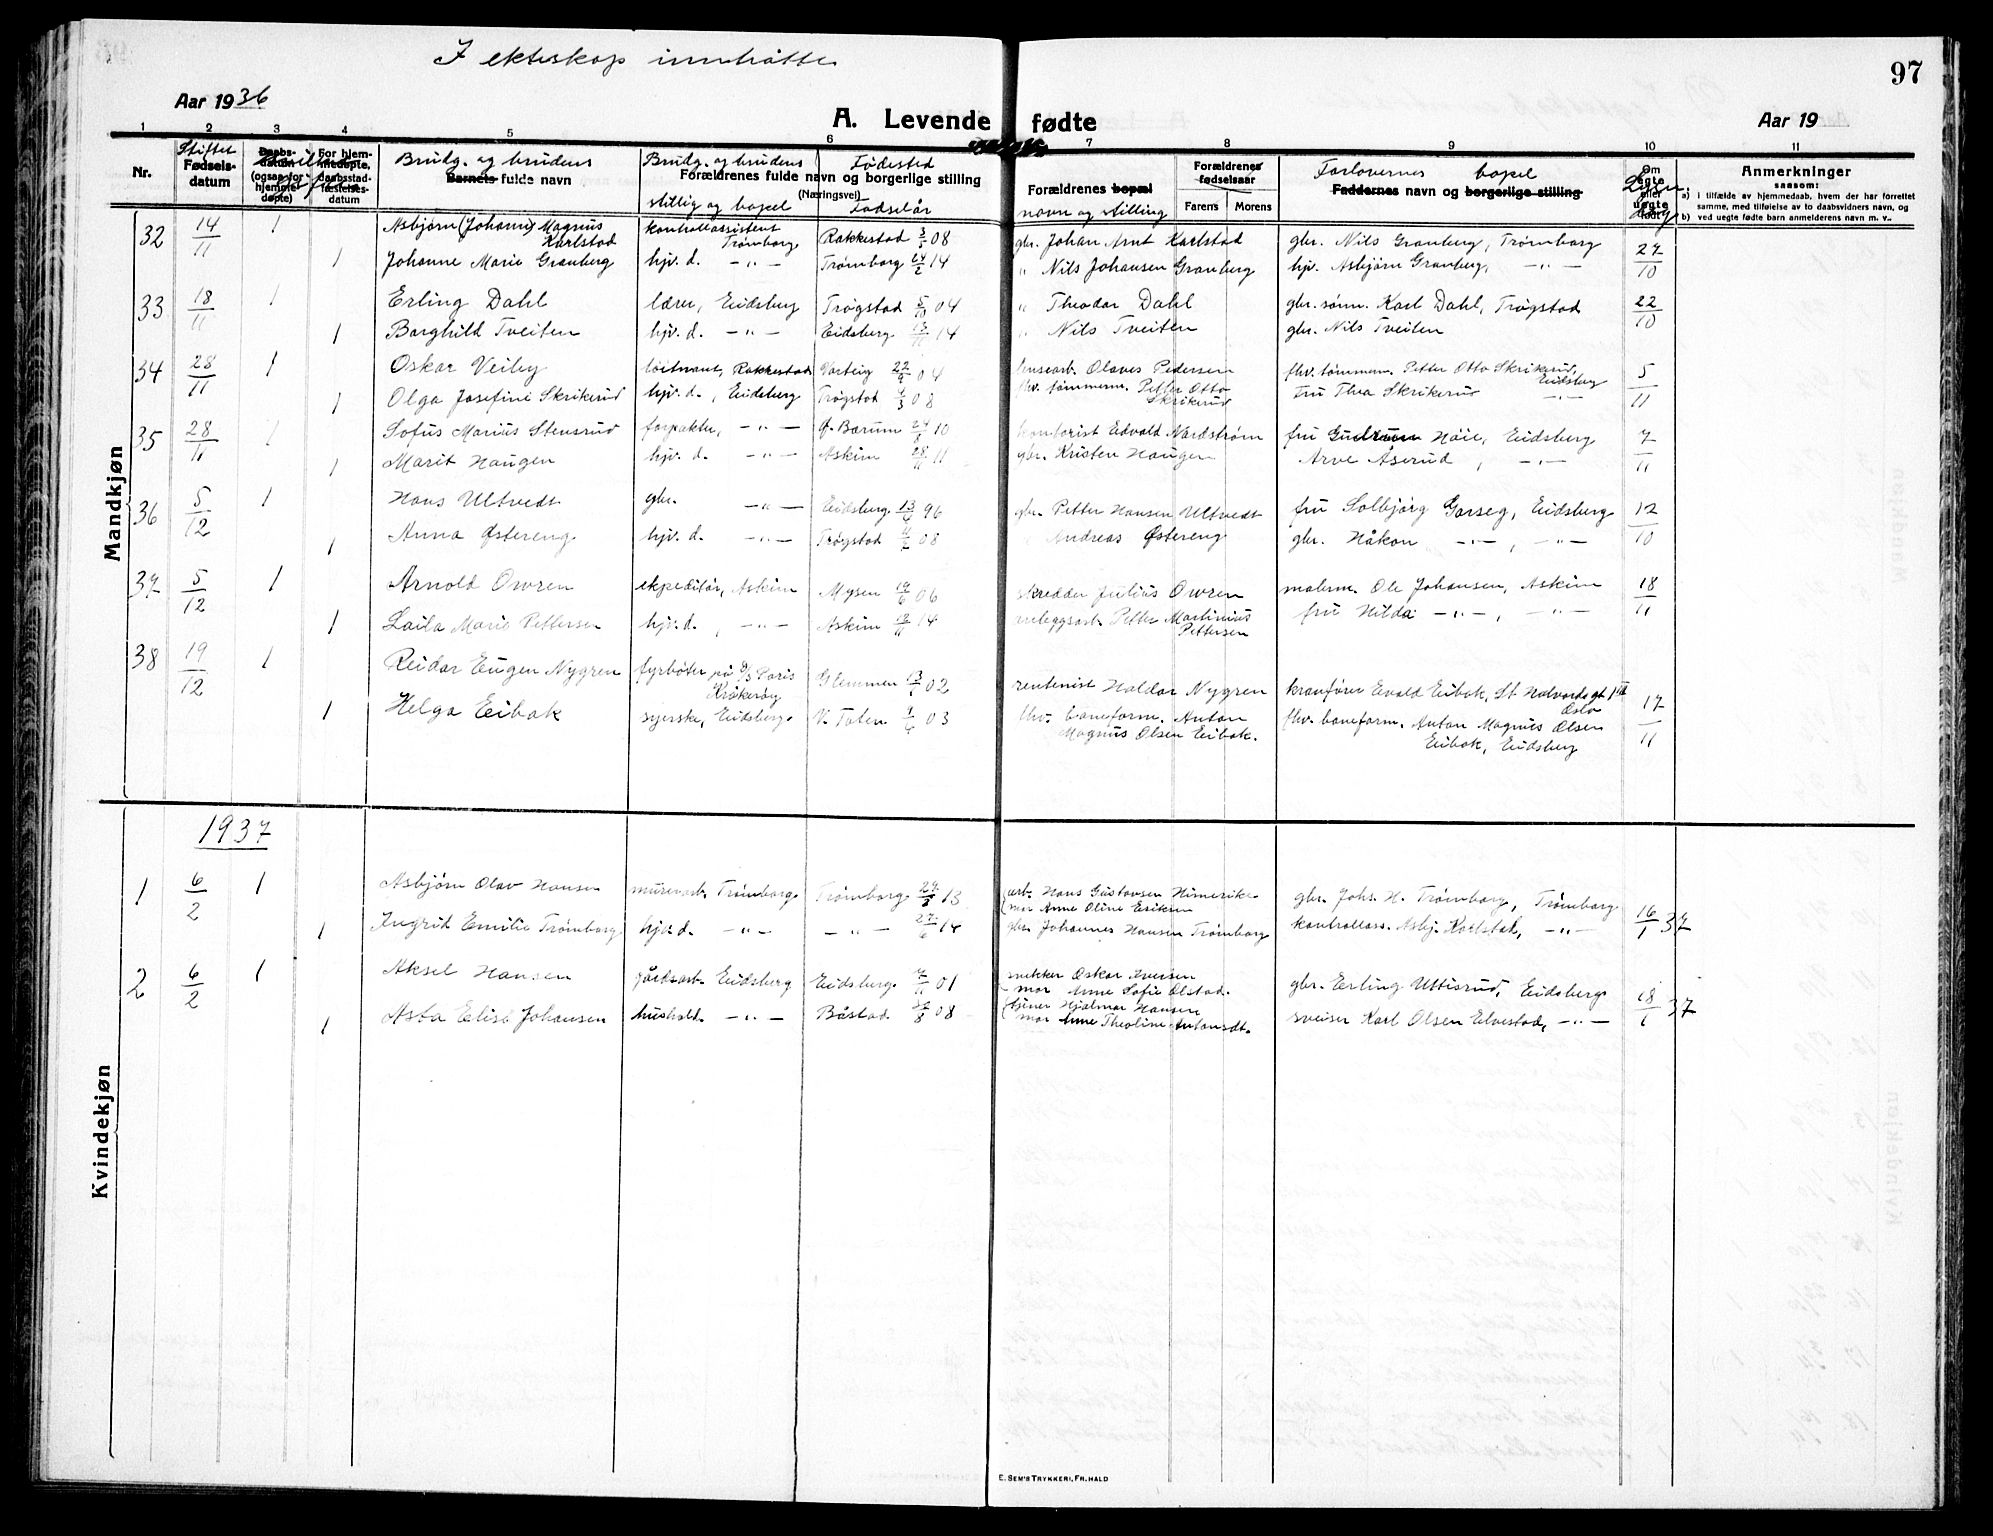 I ekteskap inntrådte
97
Aar 1936
A. Levende fødte
Aar 19
1 2 3 4 5 6 7 8 9 10 11
Nr.
Stiftet
Fødselsdatum
Daabsdatum (ogsaa for hjemmedøpte)
For hjemmedøpte, daabsstadfæstelsesdatum
Brudg. og brudens
Barnets fulde navn
Brudg. og brudens stillig og bopel
Fødested
Forældrenes fulde navn og borgerlige stilling
(Næringsvei)
Fødselår
Forældrenes bopæl
navn og stilling
Forældrenes fødselsaar
Farens Morens
Forlovernes bopel
Faddernes navn og borgerlige stilling
Om ægte eller uegte født
Anmerkninger
saasom:
a) i tilfælde av hjemmedaab, hvem der har forrettet samme, med tilføielse av to daabsvidners navn, og
b) ved uegte fødte barn anmelderens navn m. v..
Mandkjøn
32 14/11 1 Asbjørn (Johann) Magnus Karlstad kontrollassistent Trømborg Rakkestad 3/1 08 gbr. Johan Arnt Karlstad gbr. Nils Granberg, Trømborg 27/10
1 Johanne Marie Granberg hjv. d. —"— Trømborg 24/2 14 " Nils Johansen Granberg hjv. Asbjørn Granberg, —"—
33 18/11 1 Erling Dahl lærer, Eidsberg Trøgstad 5/10 04 " Theodor Dahl gbr. sønn. Karl Dahl, Trøgstad 22/10
1 Borghild Tveiten hjv. d. —"— Eidsberg 13/11 14 " Nils Tveiten gbr. Nils Tveiten
34 28/11 1 Oskar Veiby løitnant, Rakkestad Varteig 22/9 04 Olaves Pedersen fhv. tømmerm. Petter Otto Skrikerud, Eidsberg 5/11
1 Olga Josefine Skrikerud hjv. d., Eidsberg Trøgstad 4/3 08 fhv. tømmerm. Petter Otto Skrikerud fru Thea Skrikerud —"—
35 28/11 1 Sofus Marius Stensrud forpakter, —"— Ø. Bærum 24/8 10 kontorist Edvald Nordstrøm fru Gudrun Høie, Eidsberg 7/11
1 Marit Haugen hjv. d. —"— Askim 28/11 11 gbr. Kristen Haugen Arve Åserud, —"—
36 5/12 1 Hans Ultvedt gbr. —"— Eidsberg 96 gbr. Petter Hansen Ultvedt fru Solbjørg Garseg, Eidsberg 12/10
1 Anna Østereng hjv. d. —"— Trøgstad 08 " Andreas Østereng gbr. Håkon —"—, —"—
37 5/12 1 Arnold Owren ekspeditør, Askim Mysen 19/6 06 skredder Julius Owren malerm. Ole Johansen, Askim 18/11
1 Laila Marie Pettersen hjv. d., —"— Askim 14 anleggsarb. Petter Martinius Pettersen fru Hilda —"—, —"—
38 19/12 1 Reidar Eugen Nygren fyrbøter på D/S Paris Kråkerøy Glemmen 13/1 02 rentenist Haldor Nygren kranfører Evald Eibak, St. Halvards gt. 1 III Oslo 17/11
1 Helga Eibak syerske, Eidsberg V. Toten 1/4 03 fhv. baneform. Anton Magnus Olsen Eibak. fhv. baneform. Anton Magnus Olsen Eibak, Eidsberg
1937
Kvindekjøn
1 6/2 1 Asbjørn Olav Hansen murerarb. Trømborg Trømborg 13 arb. Hans Gustavsen Himerike mor Anne Oline Eriksen gbr. Johs. H. Trømborg, Trømborg 16/1 37
1 Ingrid Emilie Trømborg hjv. d. —"— —"— 27/6 14 gbr. Johannes Hansen Trømborg kontrollass. Asbj. Karlstad, —"—
2 6/2 1 Aksel Hansen gårdsarb. Eidsberg Eidsberg 7/11 01 snekker Oskar Iversen mor Anne Sofie Olstad. gbr. Erling Ultisrud, Eidsberg 18/1 37
1 Asta Elise Johansen hushold. —"— Båstad 08 Hjalmar Hansen mor Anne Theoline Antonsdt. sveiser Karl Olsen Elvestad, —"—
E. SEM'S TRYKKERI, FR.HALD